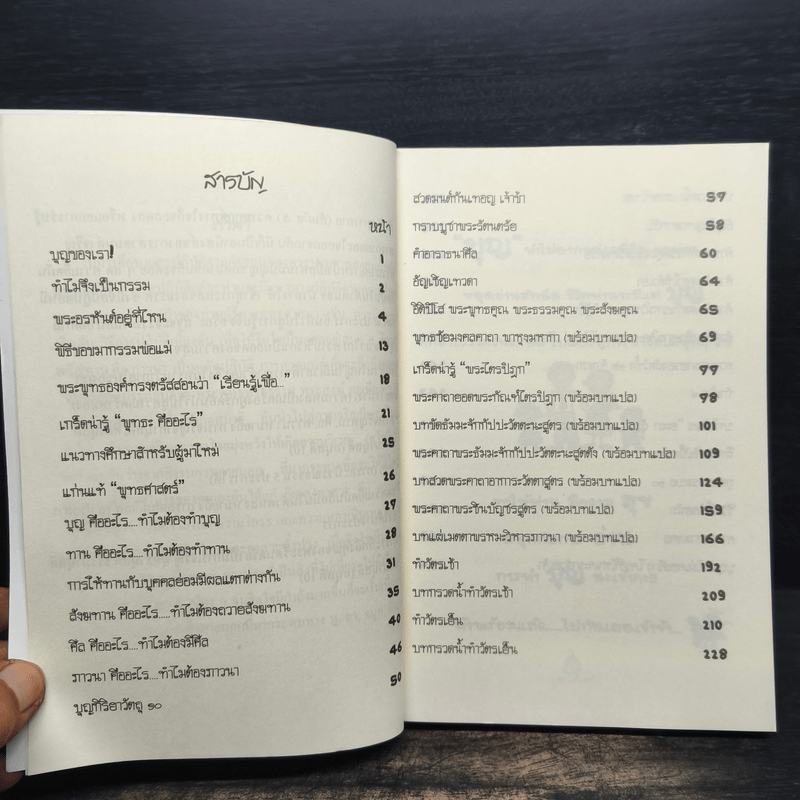 สารบัญ
หน้า
บุญของเรา! 1
ทำไมจึงเป็นกรรม 2
พระอรหันต์อยู่ที่ไหน 4
พิธีขอขมากรรมพ่อแม่ 13
พระพุทธองค์ทรงตรัสสอนว่า "เรียนรู้เพื่อ..." 18
เกร็ดน่ารู้ "พุทธะ คืออะไร" 21
แนวทางศึกษาสำหรับผู้มาใหม่ 25
แก่นแท้ "พุทธศาสตร์" 26
บุญ คืออะไร...ทำไมต้องทำบุญ 27
ทาน คืออะไร....ทำไมต้องทำทาน 28
การให้ทานกับบุคคลย่อมมีผลแตกต่างกัน 31
สังฆทาน คืออะไร.....ทำไมต้องถวายสังฆทาน 35
ศีล คืออะไร....ทำไมต้องมีศีล 40
ภาวนา คืออะไร....ทำไมต้องภาวนา 46
บุญกิริยาวัตถุ ๑๐ 50
สวดมนต์กันเทอญ เจ้าข้า 57
กราบบูชาพระรัตนตรัย 58
คำอาราธนาศีล 60
อัญเชิญเทวดา 64
อิติปิโส พระพุทธคุณ พระธรรมคุณ พระสังฆคุณ 65
พุทธชัยมงคลคาถา พาหุงมหากา (พร้อมบทแปล) 69
เกร็ดน่ารู้ "พระไตรปิฎก" 97
พระคาถายอดพระกัณฑ์ไตรปิฎก (พร้อมบทแปล) 98
บทขัดธัมมะจักกัปปะวัตตะนะสูตร (พร้อมบทแปล) 101
พระคาถาพระธัมมะจักกัปปะวัตตะนะสุตตัง (พร้อมบทแปล) 109
บทสวดพระคาถาอาการะวัตตาสูตร (พร้อมบทแปล) 124
พระคาถาพระชินบัญชรสูตร (พร้อมบทแปล) 159
บทแผ่เมตตาพรหมะวิหารภาวนา (พร้อมบทแปล) 166
ทำวัตรเช้า 192
บทกรวดน้ำทำวัตรเช้า 209
ทำวัตรเย็น 210
บทกรวดน้ำทำวัตรเย็น 228